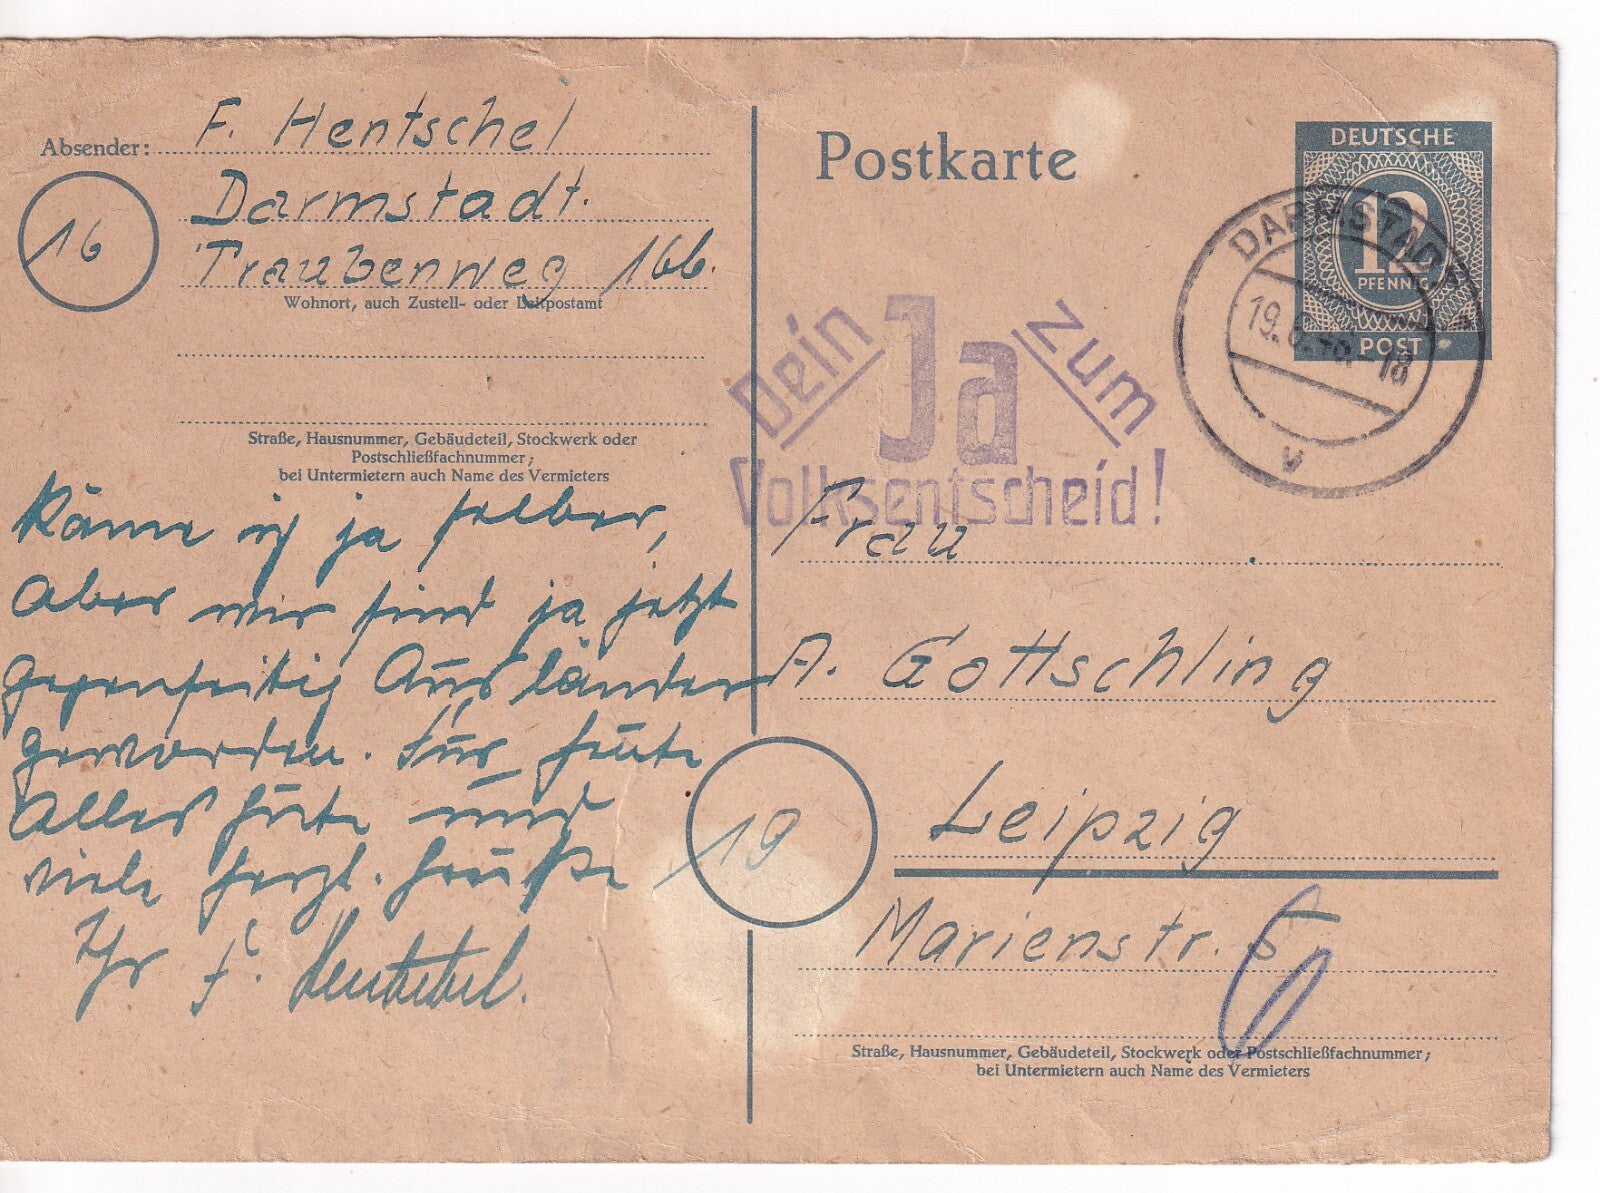 Absender: F. Hentschel
Darmstadt.
16
Traubenweg 166.
Wohnort, auch Zustell- oder Leitpostamt
Straße, Hausnummer, Gebäudeteil, Stockwerk oder
Postschließfachnummer;
bei Untermietern auch Name des Vermieters
käme ich ja selber,
aber wir sind ja jetzt
gegenseitig Ausländer
geworden. Für heute
alles Gute und
viele herzl. Grüße
Ihr F. Hentschel.
Postkarte
DEUTSCHE
12
PFENNIG
POST
DARMSTADT
19.6.46-18
v
Dein Ja zum
Volksentscheid!
Frau
A. Gottschling
19
Leipzig
Marienstr. 5
Straße, Hausnummer, Gebäudeteil, Stockwerk oder Postschließfachnummer;
bei Untermietern auch Name des Vermieters